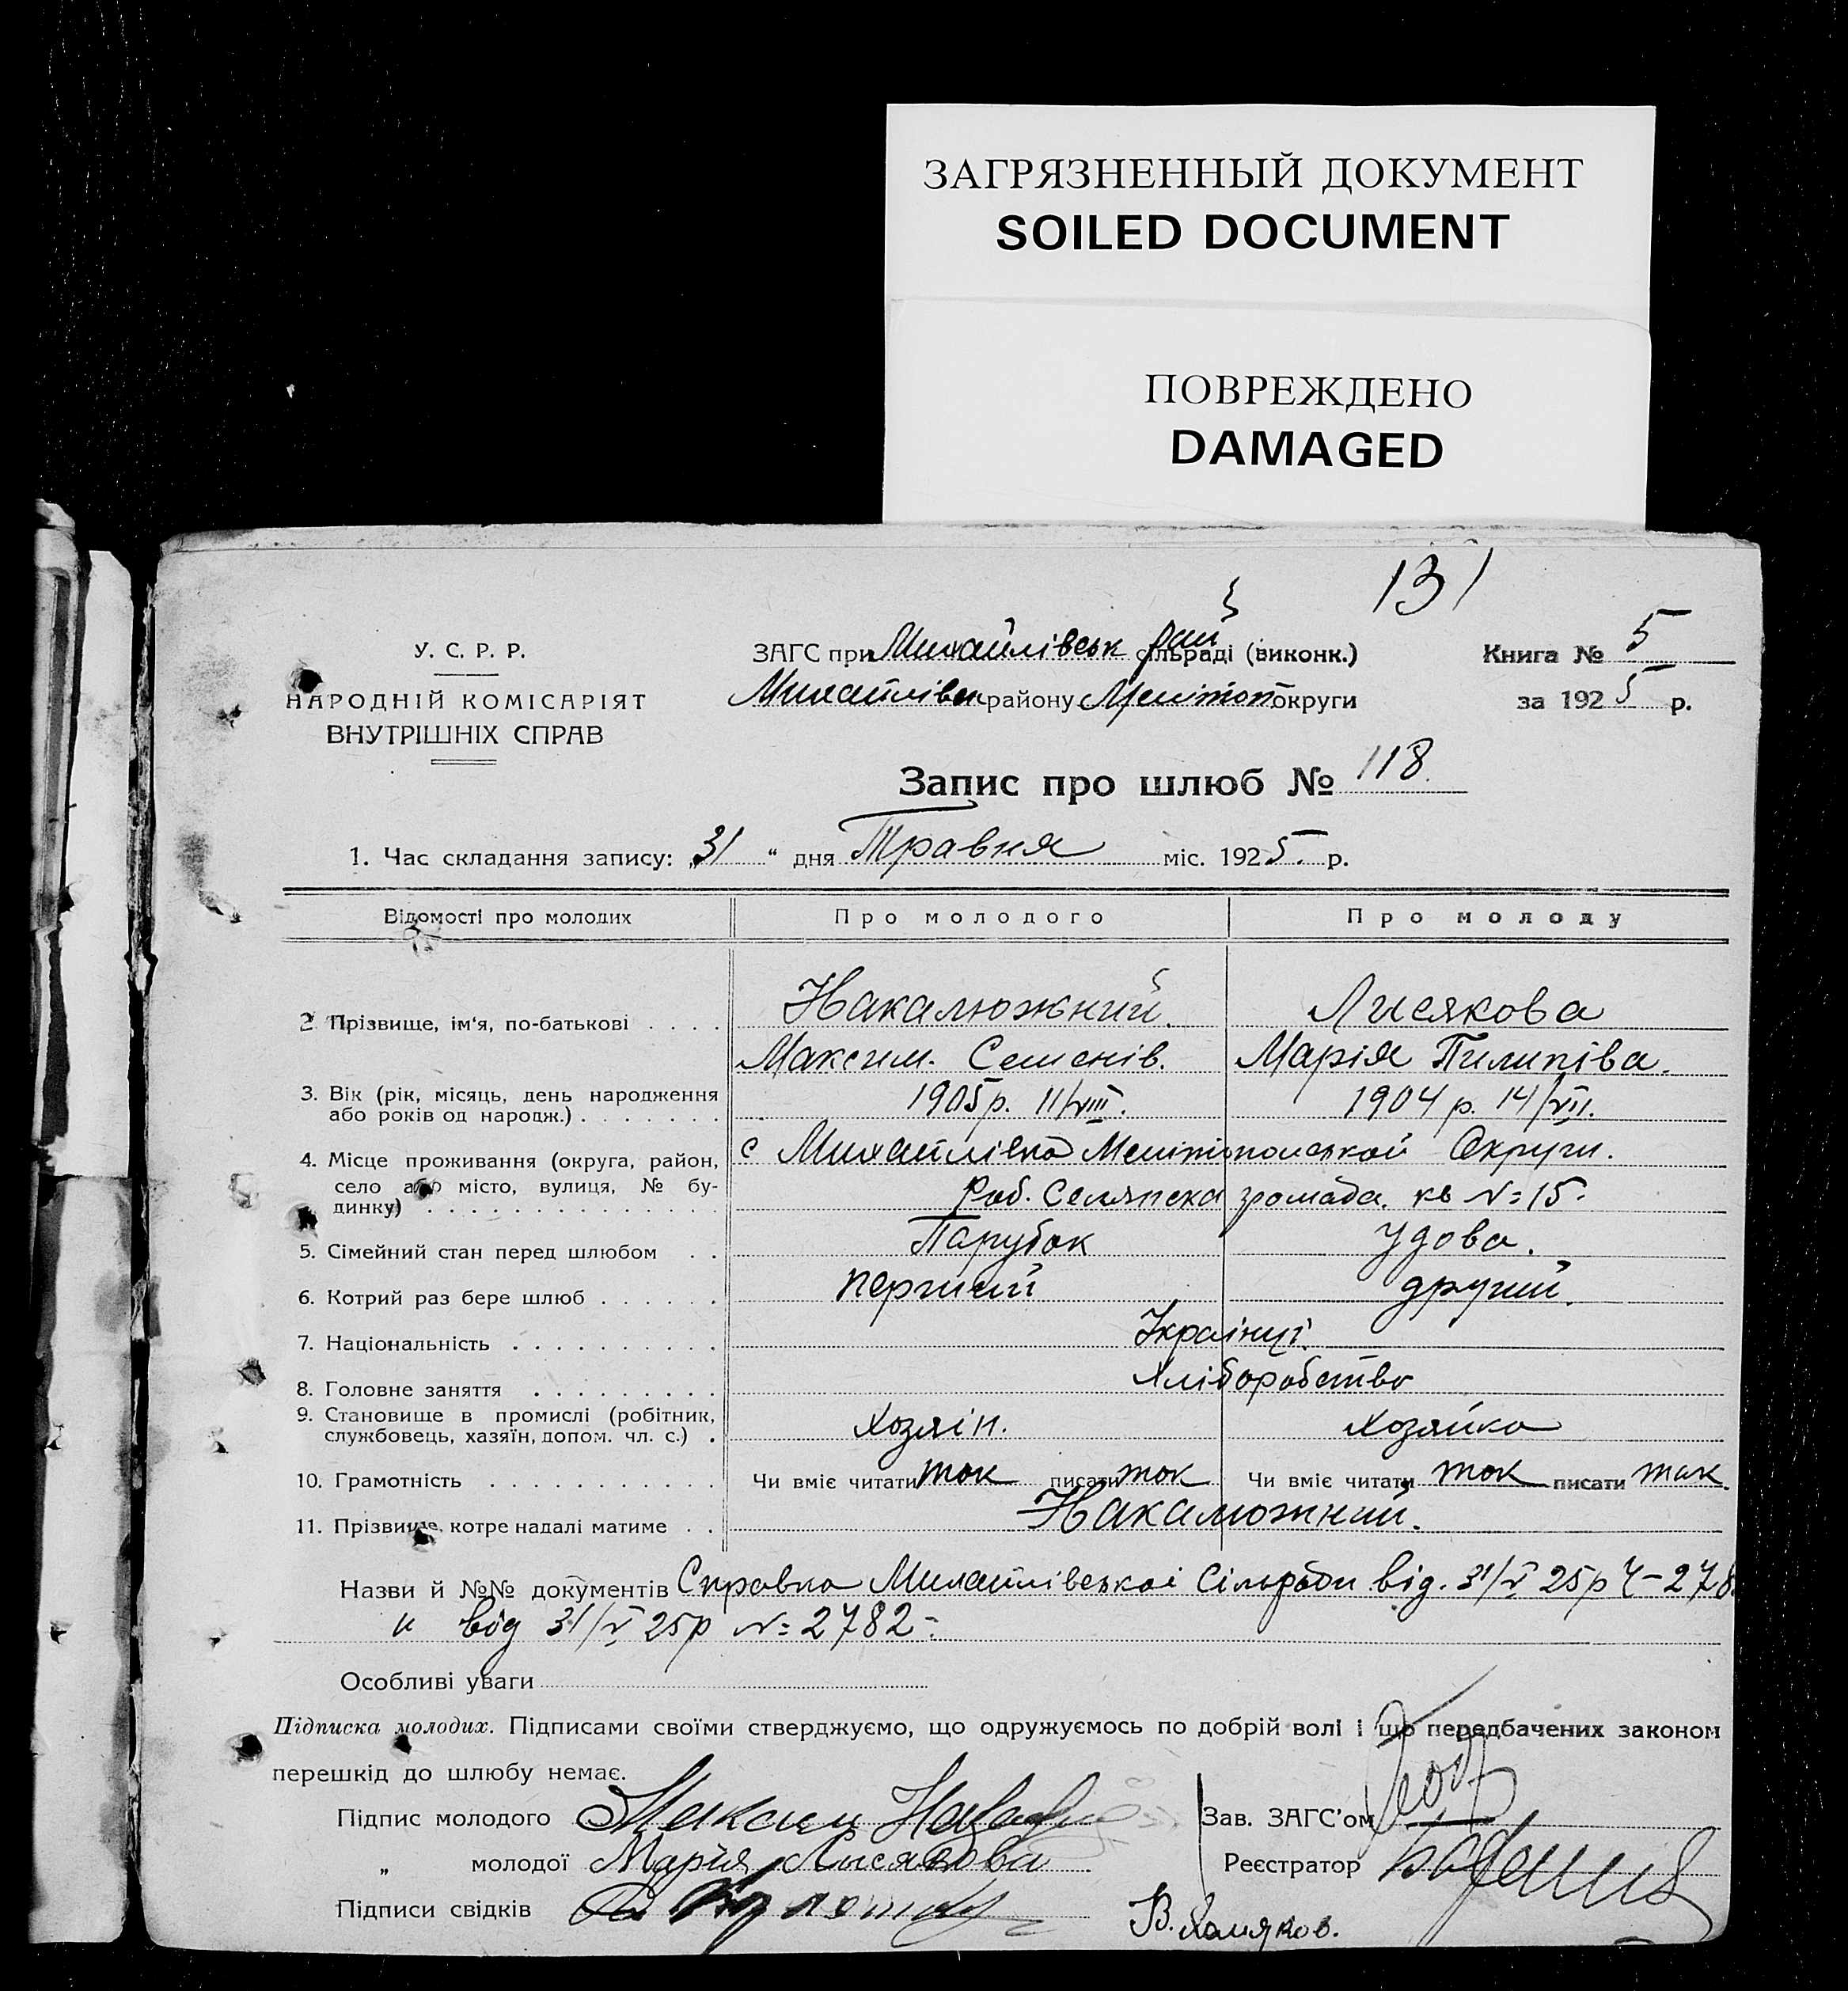 ЗАГРЯЗНЕННЫЙ ДОКУМЕНТ
SOILED DOCUMENT
ПОВРЕЖДЕНО
DAMAGED
131
У. С. Р. Р.
НАРОДНІЙ КОМІСАРІЯТ
ВНУТРІШНІХ СПРАВ
ЗАГС при Михайлівськ рай сільраді (виконк.)
Михайлівськ району Мелітоп округи
Книга № 5
за 1925 р.
Запис про шлюб № 118
1. Час складання запису: „31“ дня Травня міс. 1925 р.
Відомості про молодих Про молодого Про молоду
2 Прізвище, ім'я, по-батькові . . . . Накалюжний. Лисякова
Максим. Семенів. Марія Пилипіва.
3. Вік (рік, місяць, день народження або років од народж.) . . . . . . . 1905р. 11/VIII. 1904 р. 14/VII.
4. Місце проживання (округа, район, село або місто, вулиця, № будинку) с Михайлівка Мелітопольської Округи.
Роб. Селянска громада. кв №=15.
5. Сімейний стан перед шлюбом . . Парубок Удова.
6. Котрий раз бере шлюб . . . . . . перший другий.
7. Національність . . . . . . . . . . Українці.
8. Головне заняття . . . . . . . . . Хліборобство
9. Становище в промислі (робітник, службовець, хазяїн, допом. чл. с.) . Хозяїн. Хозяйка
10. Грамотність . . . . . . . . . . . Чи вміє читати так писати так Чи вміє читати так писати так.
11. Прізвище, котре надалі матиме . . Накалюжний.
Назви й №№ документів Справка Михайлівської Сільради від. 31/V 25р
и від 31/V 25р №=2782=.
Особливі уваги
Підписка молодих. Підписами своїми стверджуємо, що одружуємось по добрій волі і що передбачених законом
перешкід до шлюбу немає.
Підпис молодого Максим
„ молодої Марія Лысякова
Підписи свідків
Зав. ЗАГС'ом
Реєстратор
В. Хомяков.